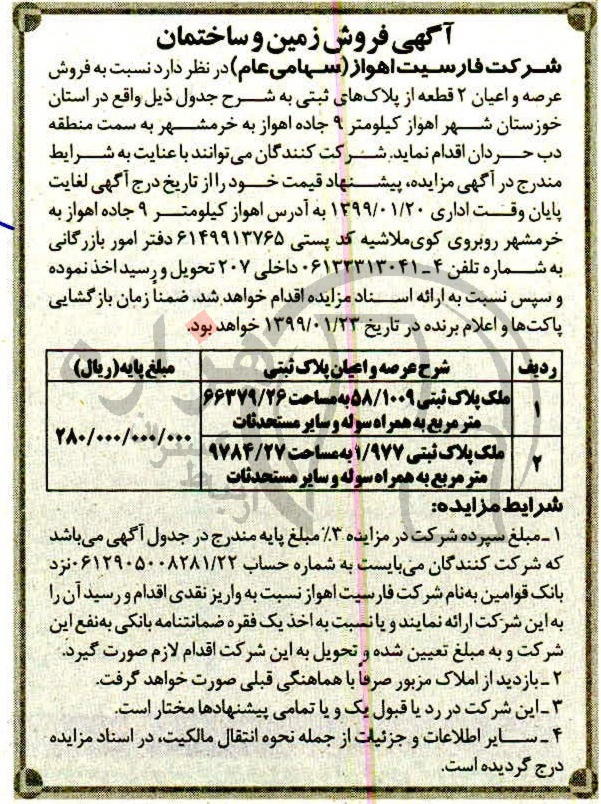 آگهی فروش زمین و ساختمان
شرکت فارسیت اهواز (سهامی عام) در نظر دارد نسبت به فروش
عرصه و اعیان ۲ قطعه از پلاک‌های ثبتی به شرح جدول ذیل واقع در استان
خوزستان شهر اهواز کیلومتر ۹ جاده اهواز به خرمشهر به سمت منطقه
دب حردان اقدام نماید. شرکت کنندگان می‌توانند با عنایت به شرایط
مندرج در آگهی مزایده، پیشنهاد قیمت خود را از تاریخ درج آگهی لغایت
پایان وقت اداری ۱۳۹۹/۰۱/۲۰ به آدرس اهواز کیلومتر ۹ جاده اهواز به
خرمشهر روبروی کوی ملاشیه کد پستی ۶۱۴۹۹۱۳۷۶۵ دفتر امور بازرگانی
به شماره تلفن ۴ ـ ۰۶۱۳۳۳۱۳۰۴۱ داخلی ۲۰۷ تحویل و رسید اخذ نموده
و سپس نسبت به ارائه اسناد مزایده اقدام خواهد شد. ضمناً زمان بازگشایی
پاکت‌ها و اعلام برنده در تاریخ ۱۳۹۹/۰۱/۲۳ خواهد بود.
ردیف شرح عرصه و اعیان پلاک ثبتی مبلغ پایه (ریال)
۱ ملک پلاک ثبتی ۵۸/۱۰۰۹ به مساحت ۶۶۳۷۹/۲۶
متر مربع به همراه سوله و سایر مستحدثات
۲۸۰/۰۰۰/۰۰۰/۰۰۰
۲ ملک پلاک ثبتی ۱/۹۷۷ به مساحت ۹۷۸۴/۲۷
متر مربع به همراه سوله و سایر مستحدثات
شرایط مزایده:
۱ ـ مبلغ سپرده شرکت در مزایده ۳٪ مبلغ پایه مندرج در جدول آگهی می‌باشد
که شرکت کنندگان می‌بایست به شماره حساب ۰۶۱۲۹۰۵۰۰۸۲۸۱/۲۲ نزد
بانک قوامین به‌نام شرکت فارسیت اهواز نسبت به واریز نقدی اقدام و رسید آن را
به این شرکت ارائه نمایند و یا نسبت به اخذ یک فقره ضمانتنامه بانکی به‌نفع این
شرکت و به مبلغ تعیین شده و تحویل به این شرکت اقدام لازم صورت گیرد.
۲ ـ بازدید از املاک مزبور صرفاً با هماهنگی قبلی صورت خواهد گرفت.
۳ ـ این شرکت در رد یا قبول یک و یا تمامی پیشنهادها مختار است.
۴ ـ سایر اطلاعات و جزئیات از جمله نحوه انتقال مالکیت، در اسناد مزایده
درج گردیده است.